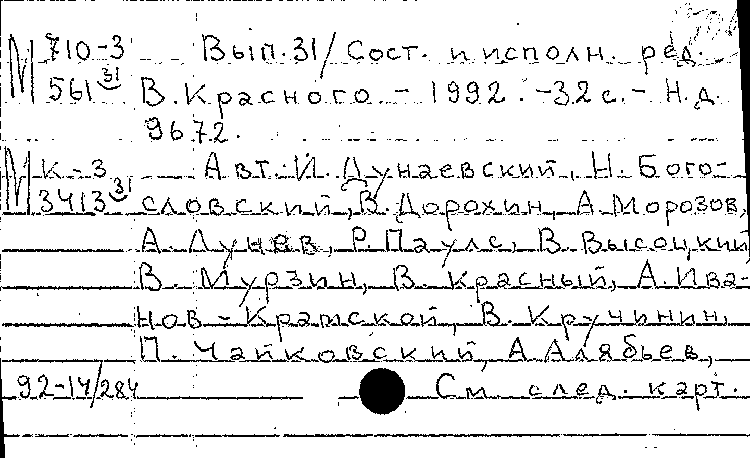 М 710-3 Вып.31/Сост. и исполн. ред.
561 31 В.Красного. - 1992. - 32 с. - Н.д.
9672.
М К-3 Авт.: И. Дунаевский, Н. Бого-
3413 31 словский, В. Дорохин, А. Морозов,
А. Лунев, Р. Паулс, В. Высоцкий
В. Мурзин, В. Красный, А. Ива-
нов-Крамской, В. Кручинин,
П. Чайковский, А. Алябьев,
92-14/284 См. след. карт.